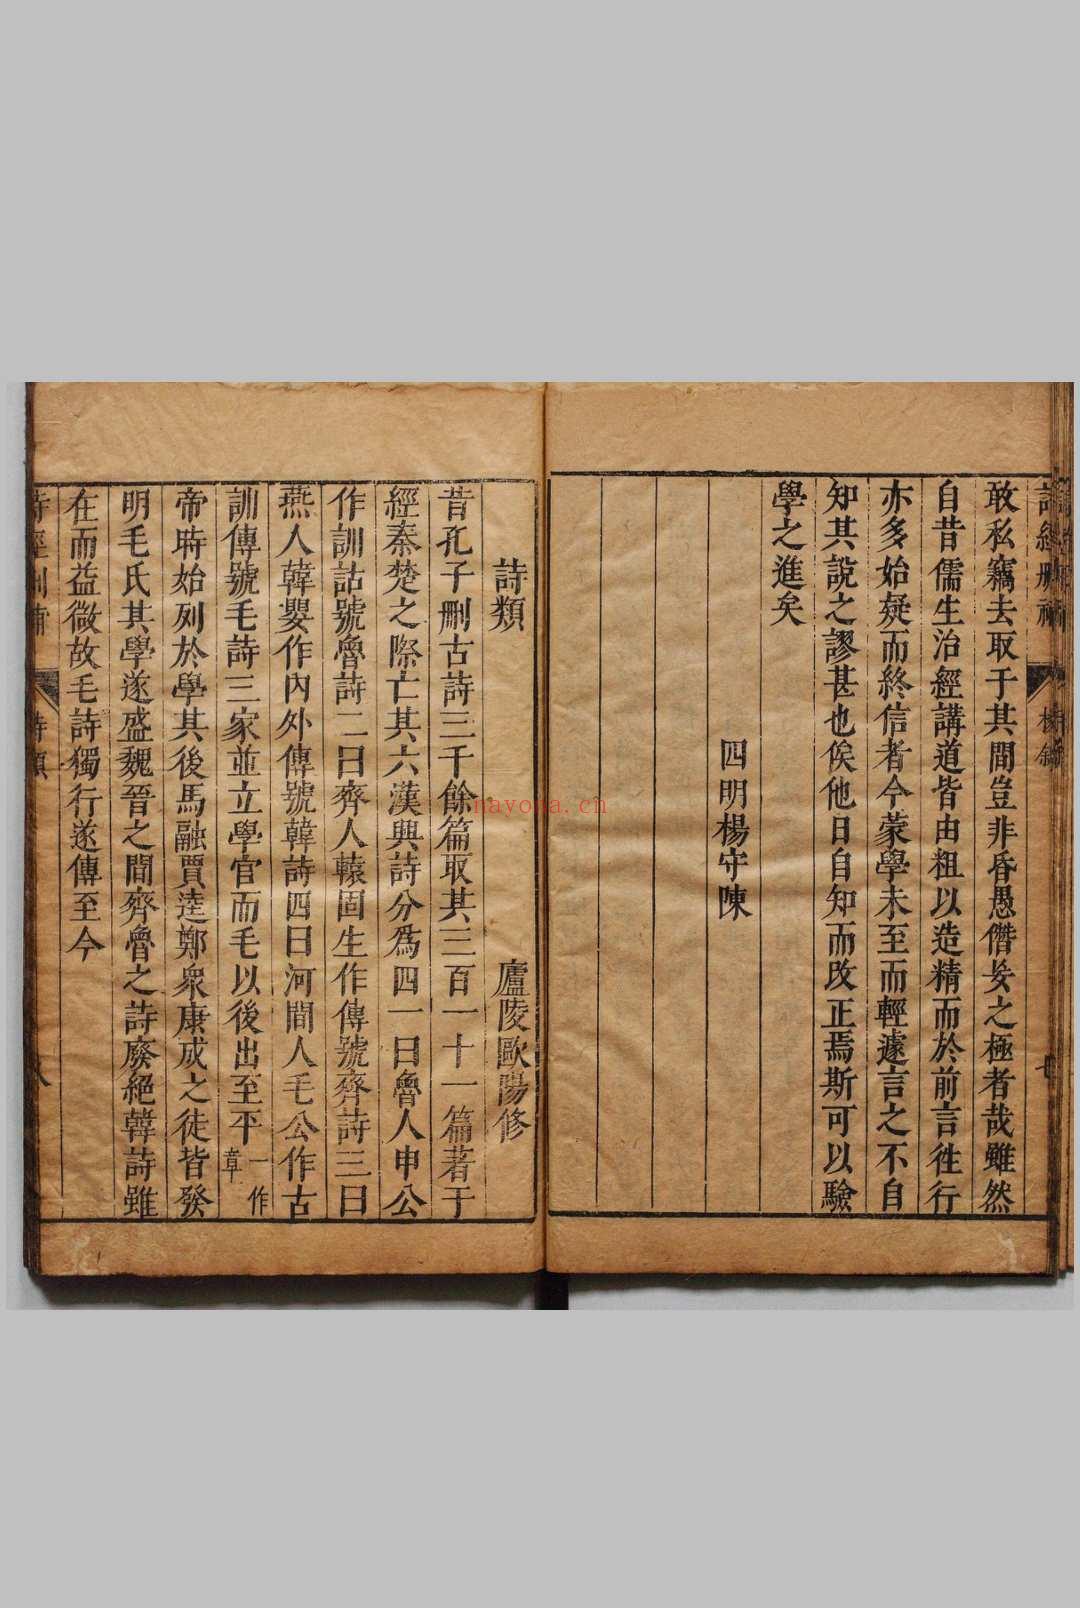 敢私竊去取于其間豈非昏愚僭妄之極者哉雖然
自昔儒生治經講道皆由粗以造精而於前言徃行
亦多始疑而終信者今蒙學未至而輕遽言之不自
知其說之謬甚也俟他日自知而改正焉斯可以驗
學之進矣
四明楊守陳
詩類
廬陵歐陽修
昔孔子刪古詩三千餘篇取其三百一十一篇著于
經秦楚之際亡其六漢興詩分為四一曰魯人申公
作訓詁號魯詩二曰齊人轅固生作傳號齊詩三曰
燕人韓嬰作內外傳號韓詩四曰河間人毛公作古
訓傳號毛詩三家並立學官而毛以後出至平一作章
帝時始列於學其後馬融賈逵鄭衆康成之徒皆發
明毛氏其學遂盛魏晉之間齊魯之詩廢絕韓詩雖
在而益微故毛詩獨行遂傳至今
詩類
八
nayona.cn